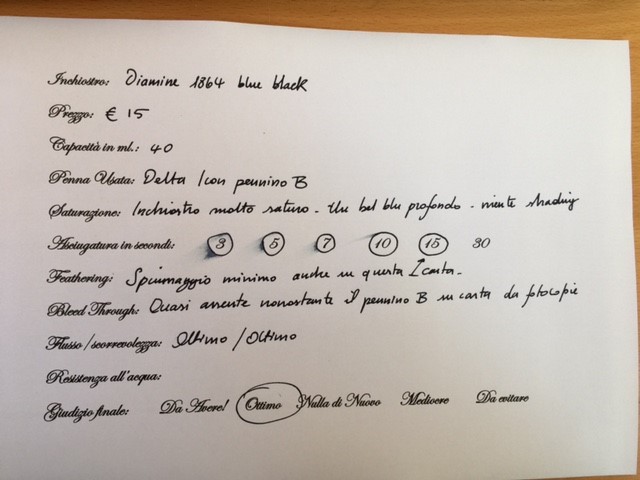 Inchiostro: Diamine 1864 blue black
Prezzo: € 15
Capacità in ml.: 40
Penna Usata: Delta Icon pennino B
Saturazione: Inchiostro molto saturo - Un bel blu profondo - niente shading
Asciugatura in secondi: 3 5 7 10 15 30
Feathering: Spiumaggio minimo anche su questa carta -
Bleed Through: Quasi assente nonostante il pennino B su carta da fotocopie
Flusso / scorrevolezza: Ottimo / Ottimo
Resistenza all'acqua:
Giudizio finale: Da Avere! Ottimo Nulla di Nuovo Mediocre Da evitare